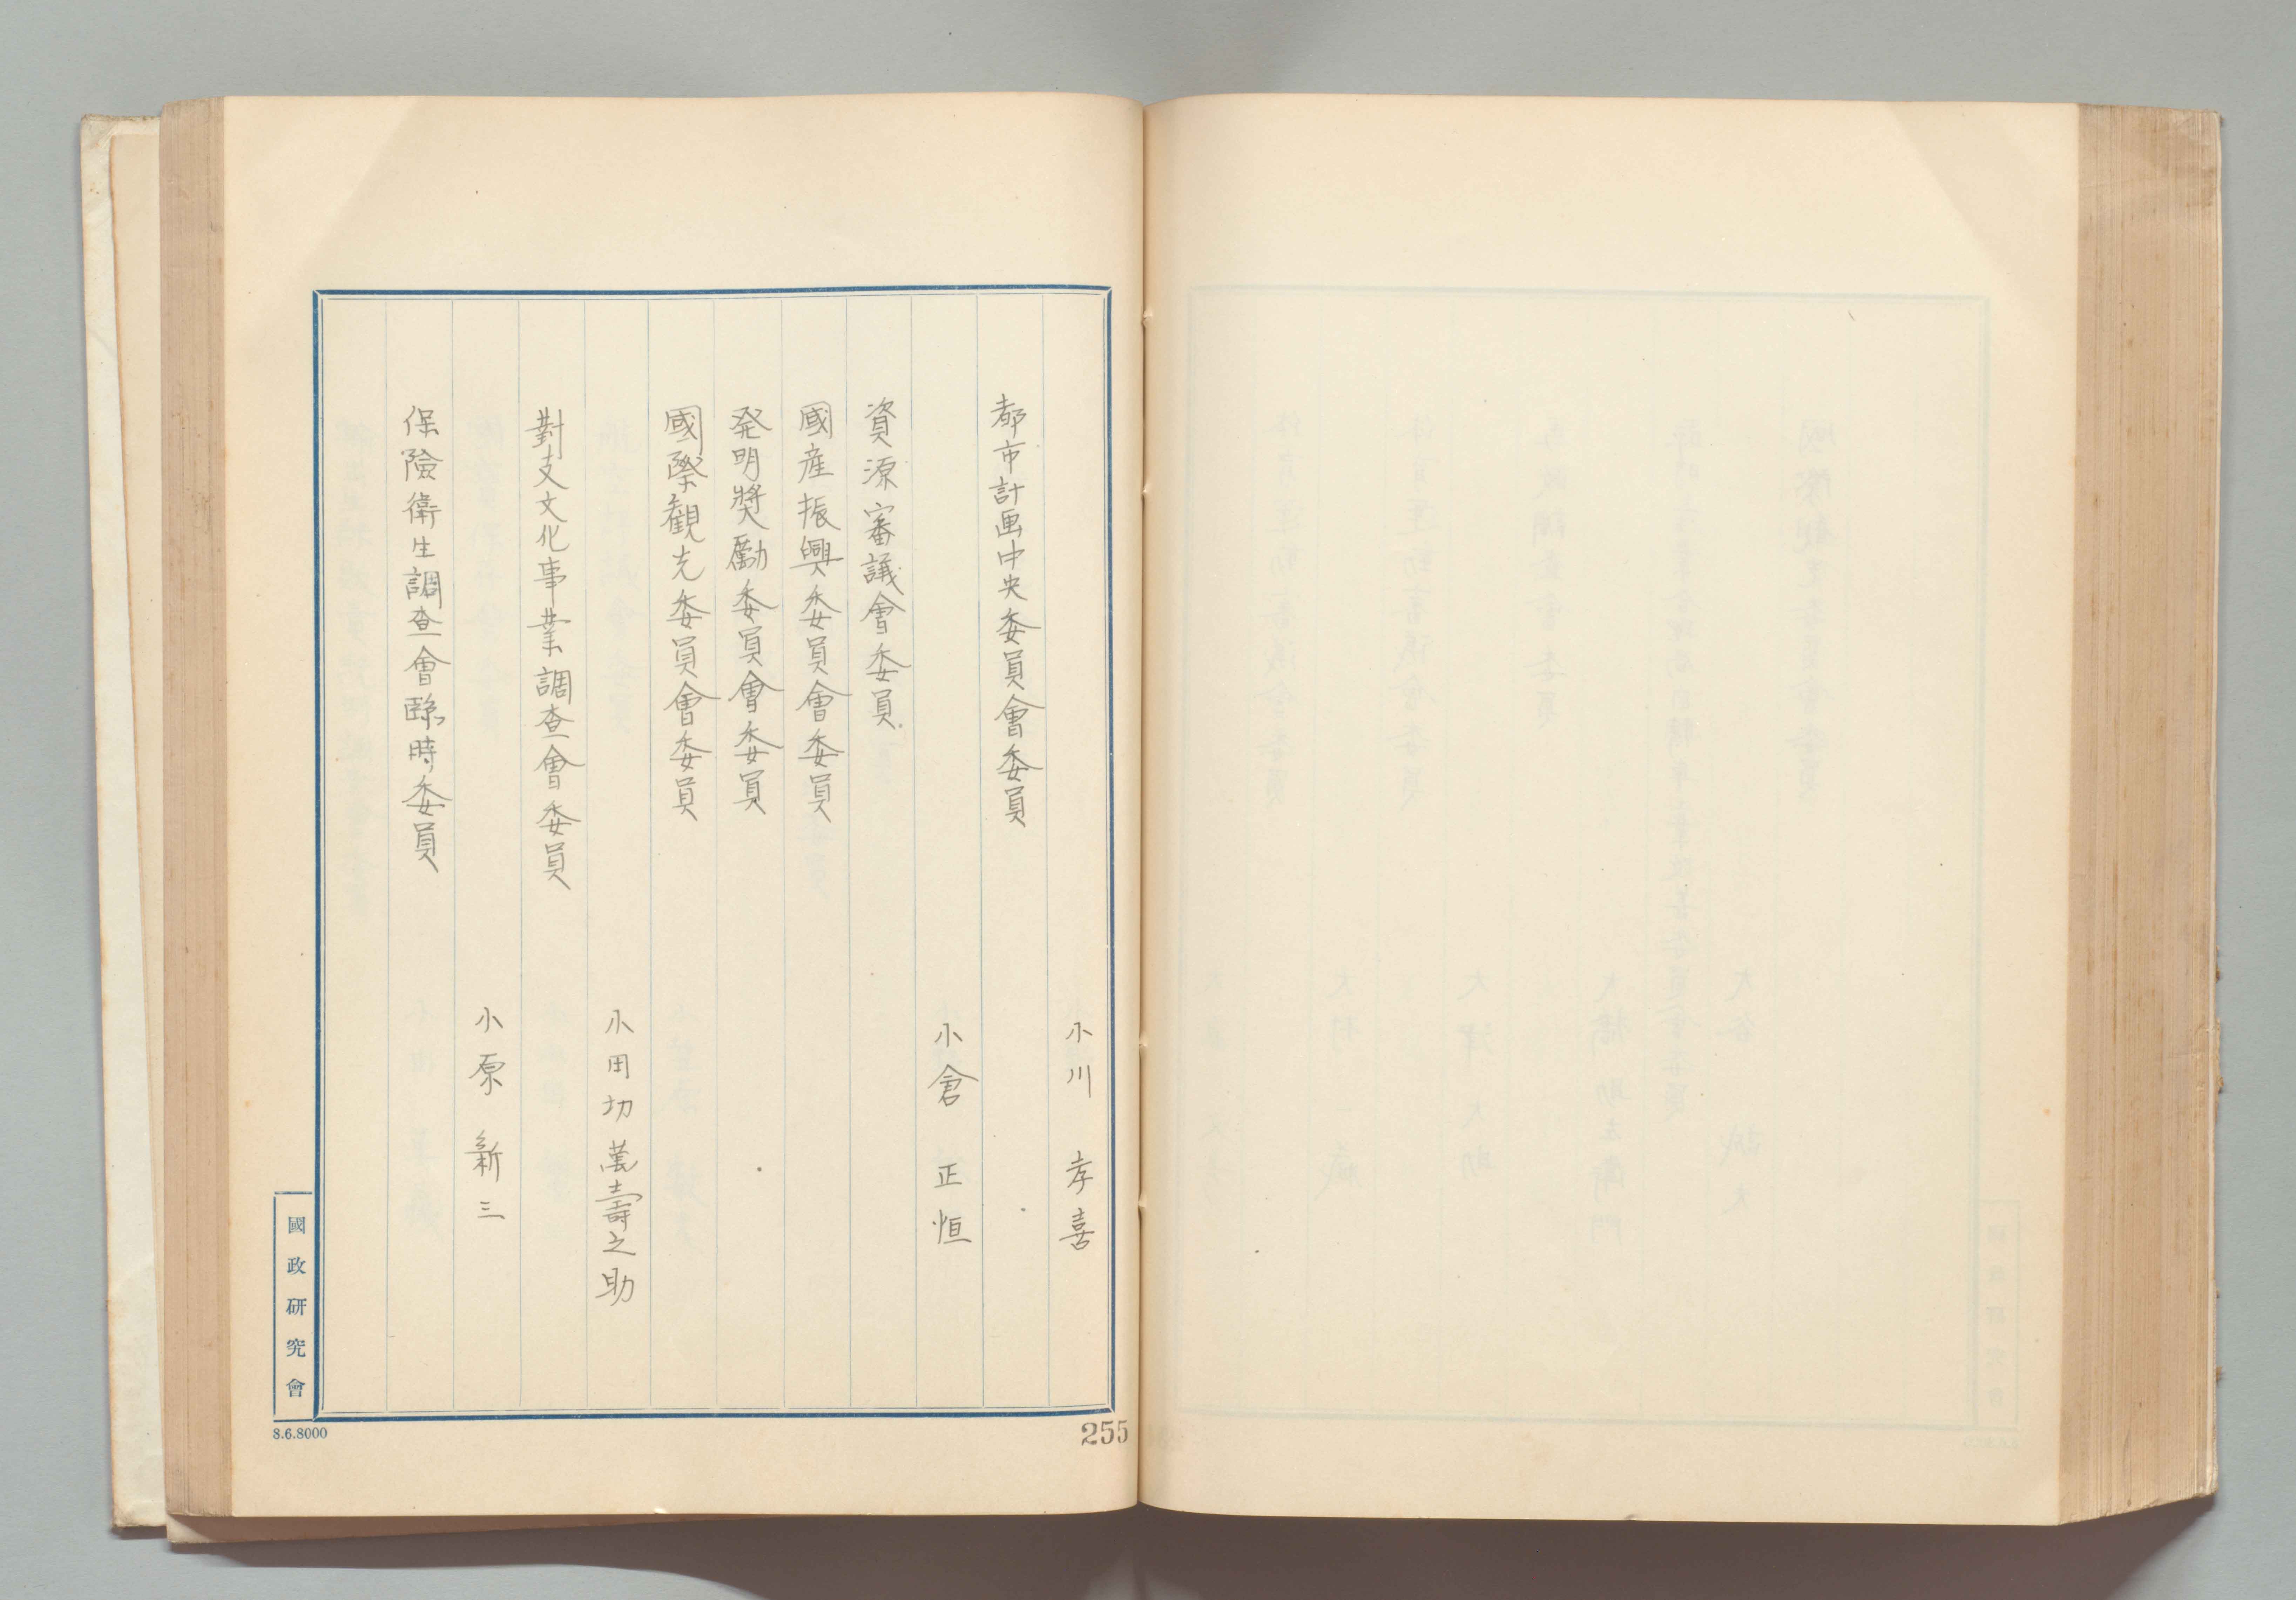 小川孝喜
都市計画中央委員會委員
小倉正恒
資源審議會委員
國産振興委員會委員
発明奬勵委員會委員
國際観光委員會委員
小田切萬壽之助
對支文化事業調査會委員
小原新三
保險衛生調査會臨時委員
國政研究會
8.6.8000
255